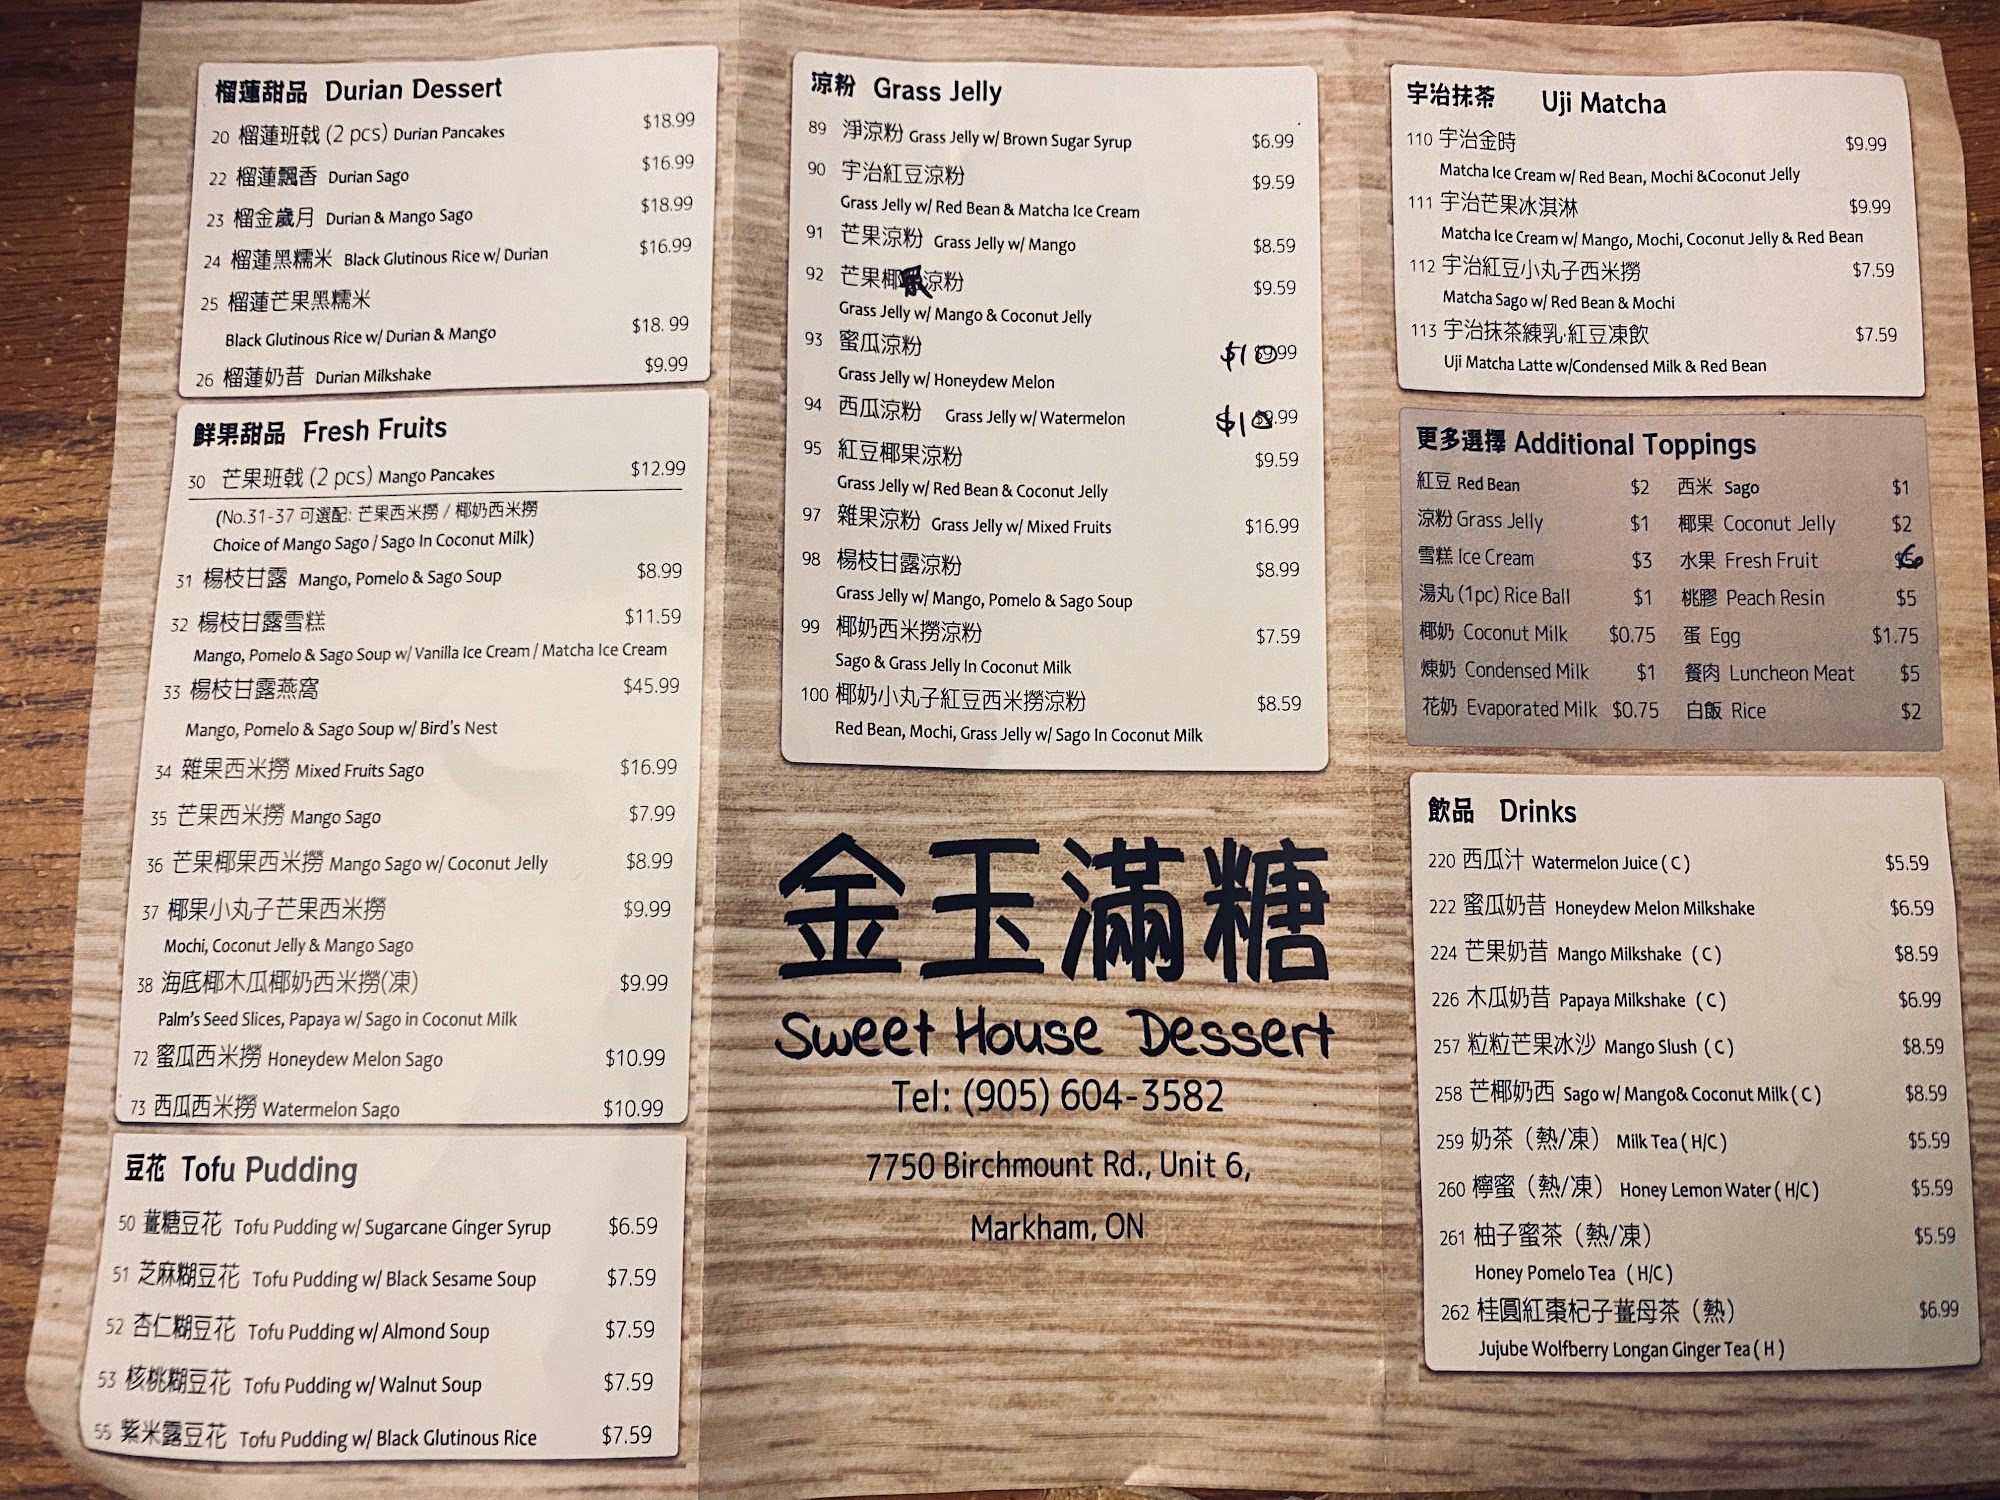 榴蓮甜品 Durian Dessert
20 榴蓮班戟 (2 pcs) Durian Pancakes $18.99
22 榴蓮飄香 Durian Sago $16.99
23 榴金歲月 Durian & Mango Sago $18.99
24 榴蓮黑糯米 Black Glutinous Rice w/ Durian $16.99
25 榴蓮芒果黑糯米
Black Glutinous Rice w/ Durian & Mango $18. 99
26 榴蓮奶昔 Durian Milkshake $9.99
鮮果甜品 Fresh Fruits
30 芒果班戟 (2 pcs) Mango Pancakes $12.99
(No.31-37 可選配: 芒果西米撈 / 椰奶西米撈
Choice of Mango Sago / Sago In Coconut Milk)
31 楊枝甘露 Mango, Pomelo & Sago Soup $8.99
32 楊枝甘露雪糕 $11.59
Mango, Pomelo & Sago Soup w/ Vanilla Ice Cream / Matcha Ice Cream
33 楊枝甘露燕窩 $45.99
Mango, Pomelo & Sago Soup w/ Bird's Nest
34 雜果西米撈 Mixed Fruits Sago $16.99
35 芒果西米撈 Mango Sago $7.99
36 芒果椰果西米撈 Mango Sago w/ Coconut Jelly $8.99
37 椰果小丸子芒果西米撈 $9.99
Mochi, Coconut Jelly & Mango Sago
38 海底椰木瓜椰奶西米撈(凍) $9.99
Palm's Seed Slices, Papaya w/ Sago in Coconut Milk
72 蜜瓜西米撈 Honeydew Melon Sago $10.99
73 西瓜西米撈 Watermelon Sago $10.99
豆花 Tofu Pudding
50 薑糖豆花 Tofu Pudding w/ Sugarcane Ginger Syrup $6.59
51 芝麻糊豆花 Tofu Pudding w/ Black Sesame Soup $7.59
52 杏仁糊豆花 Tofu Pudding w/ Almond Soup $7.59
53 核桃糊豆花 Tofu Pudding w/ Walnut Soup $7.59
55 紫米露豆花 Tofu Pudding w/ Black Glutinous Rice $7.59
涼粉 Grass Jelly
89 淨涼粉 Grass Jelly w/ Brown Sugar Syrup $6.99
90 宇治紅豆涼粉 $9.59
Grass Jelly w/ Red Bean & Matcha Ice Cream
91 芒果涼粉 Grass Jelly w/ Mango $8.59
92 芒果椰果涼粉 $9.59
Grass Jelly w/ Mango & Coconut Jelly
93 蜜瓜涼粉 $10 $9.99
Grass Jelly w/ Honeydew Melon
94 西瓜涼粉 Grass Jelly w/ Watermelon $10 $9.99
95 紅豆椰果涼粉 $9.59
Grass Jelly w/ Red Bean & Coconut Jelly
97 雜果涼粉 Grass Jelly w/ Mixed Fruits $16.99
98 楊枝甘露涼粉 $8.99
Grass Jelly w/ Mango, Pomelo & Sago Soup
99 椰奶西米撈涼粉 $7.59
Sago & Grass Jelly In Coconut Milk
100 椰奶小丸子紅豆西米撈涼粉 $8.59
Red Bean, Mochi, Grass Jelly w/ Sago In Coconut Milk
金玉滿糖
Sweet House Dessert
Tel: (905) 604-3582
7750 Birchmount Rd., Unit 6,
Markham, ON
宇治抹茶 Uji Matcha
110 宇治金時 $9.99
Matcha Ice Cream w/ Red Bean, Mochi &Coconut Jelly
111 宇治芒果冰淇淋 $9.99
Matcha Ice Cream w/ Mango, Mochi, Coconut Jelly & Red Bean
112 宇治紅豆小丸子西米撈 $7.59
Matcha Sago w/ Red Bean & Mochi
113 宇治抹茶練乳·紅豆凍飲 $7.59
Uji Matcha Latte w/Condensed Milk & Red Bean
更多選擇 Additional Toppings
紅豆 Red Bean $2 西米 Sago $1
涼粉 Grass Jelly $1 椰果 Coconut Jelly $2
雪糕 Ice Cream $3 水果 Fresh Fruit $5 6
湯丸 (1pc) Rice Ball $1 桃膠 Peach Resin $5
椰奶 Coconut Milk $0.75 蛋 Egg $1.75
煉奶 Condensed Milk $1 餐肉 Luncheon Meat $5
花奶 Evaporated Milk $0.75 白飯 Rice $2
飲品 Drinks
220 西瓜汁 Watermelon Juice ( C ) $5.59
222 蜜瓜奶昔 Honeydew Melon Milkshake $6.59
224 芒果奶昔 Mango Milkshake ( C ) $8.59
226 木瓜奶昔 Papaya Milkshake ( C ) $6.99
257 粒粒芒果冰沙 Mango Slush ( C ) $8.59
258 芒椰奶西 Sago w/ Mango& Coconut Milk ( C ) $8.59
259 奶茶（熱/凍） Milk Tea ( H/C ) $5.59
260 檸蜜（熱/凍） Honey Lemon Water ( H/C ) $5.59
261 柚子蜜茶（熱/凍） $5.59
Honey Pomelo Tea ( H/C )
262 桂圓紅棗杞子薑母茶（熱） $6.99
Jujube Wolfberry Longan Ginger Tea ( H )